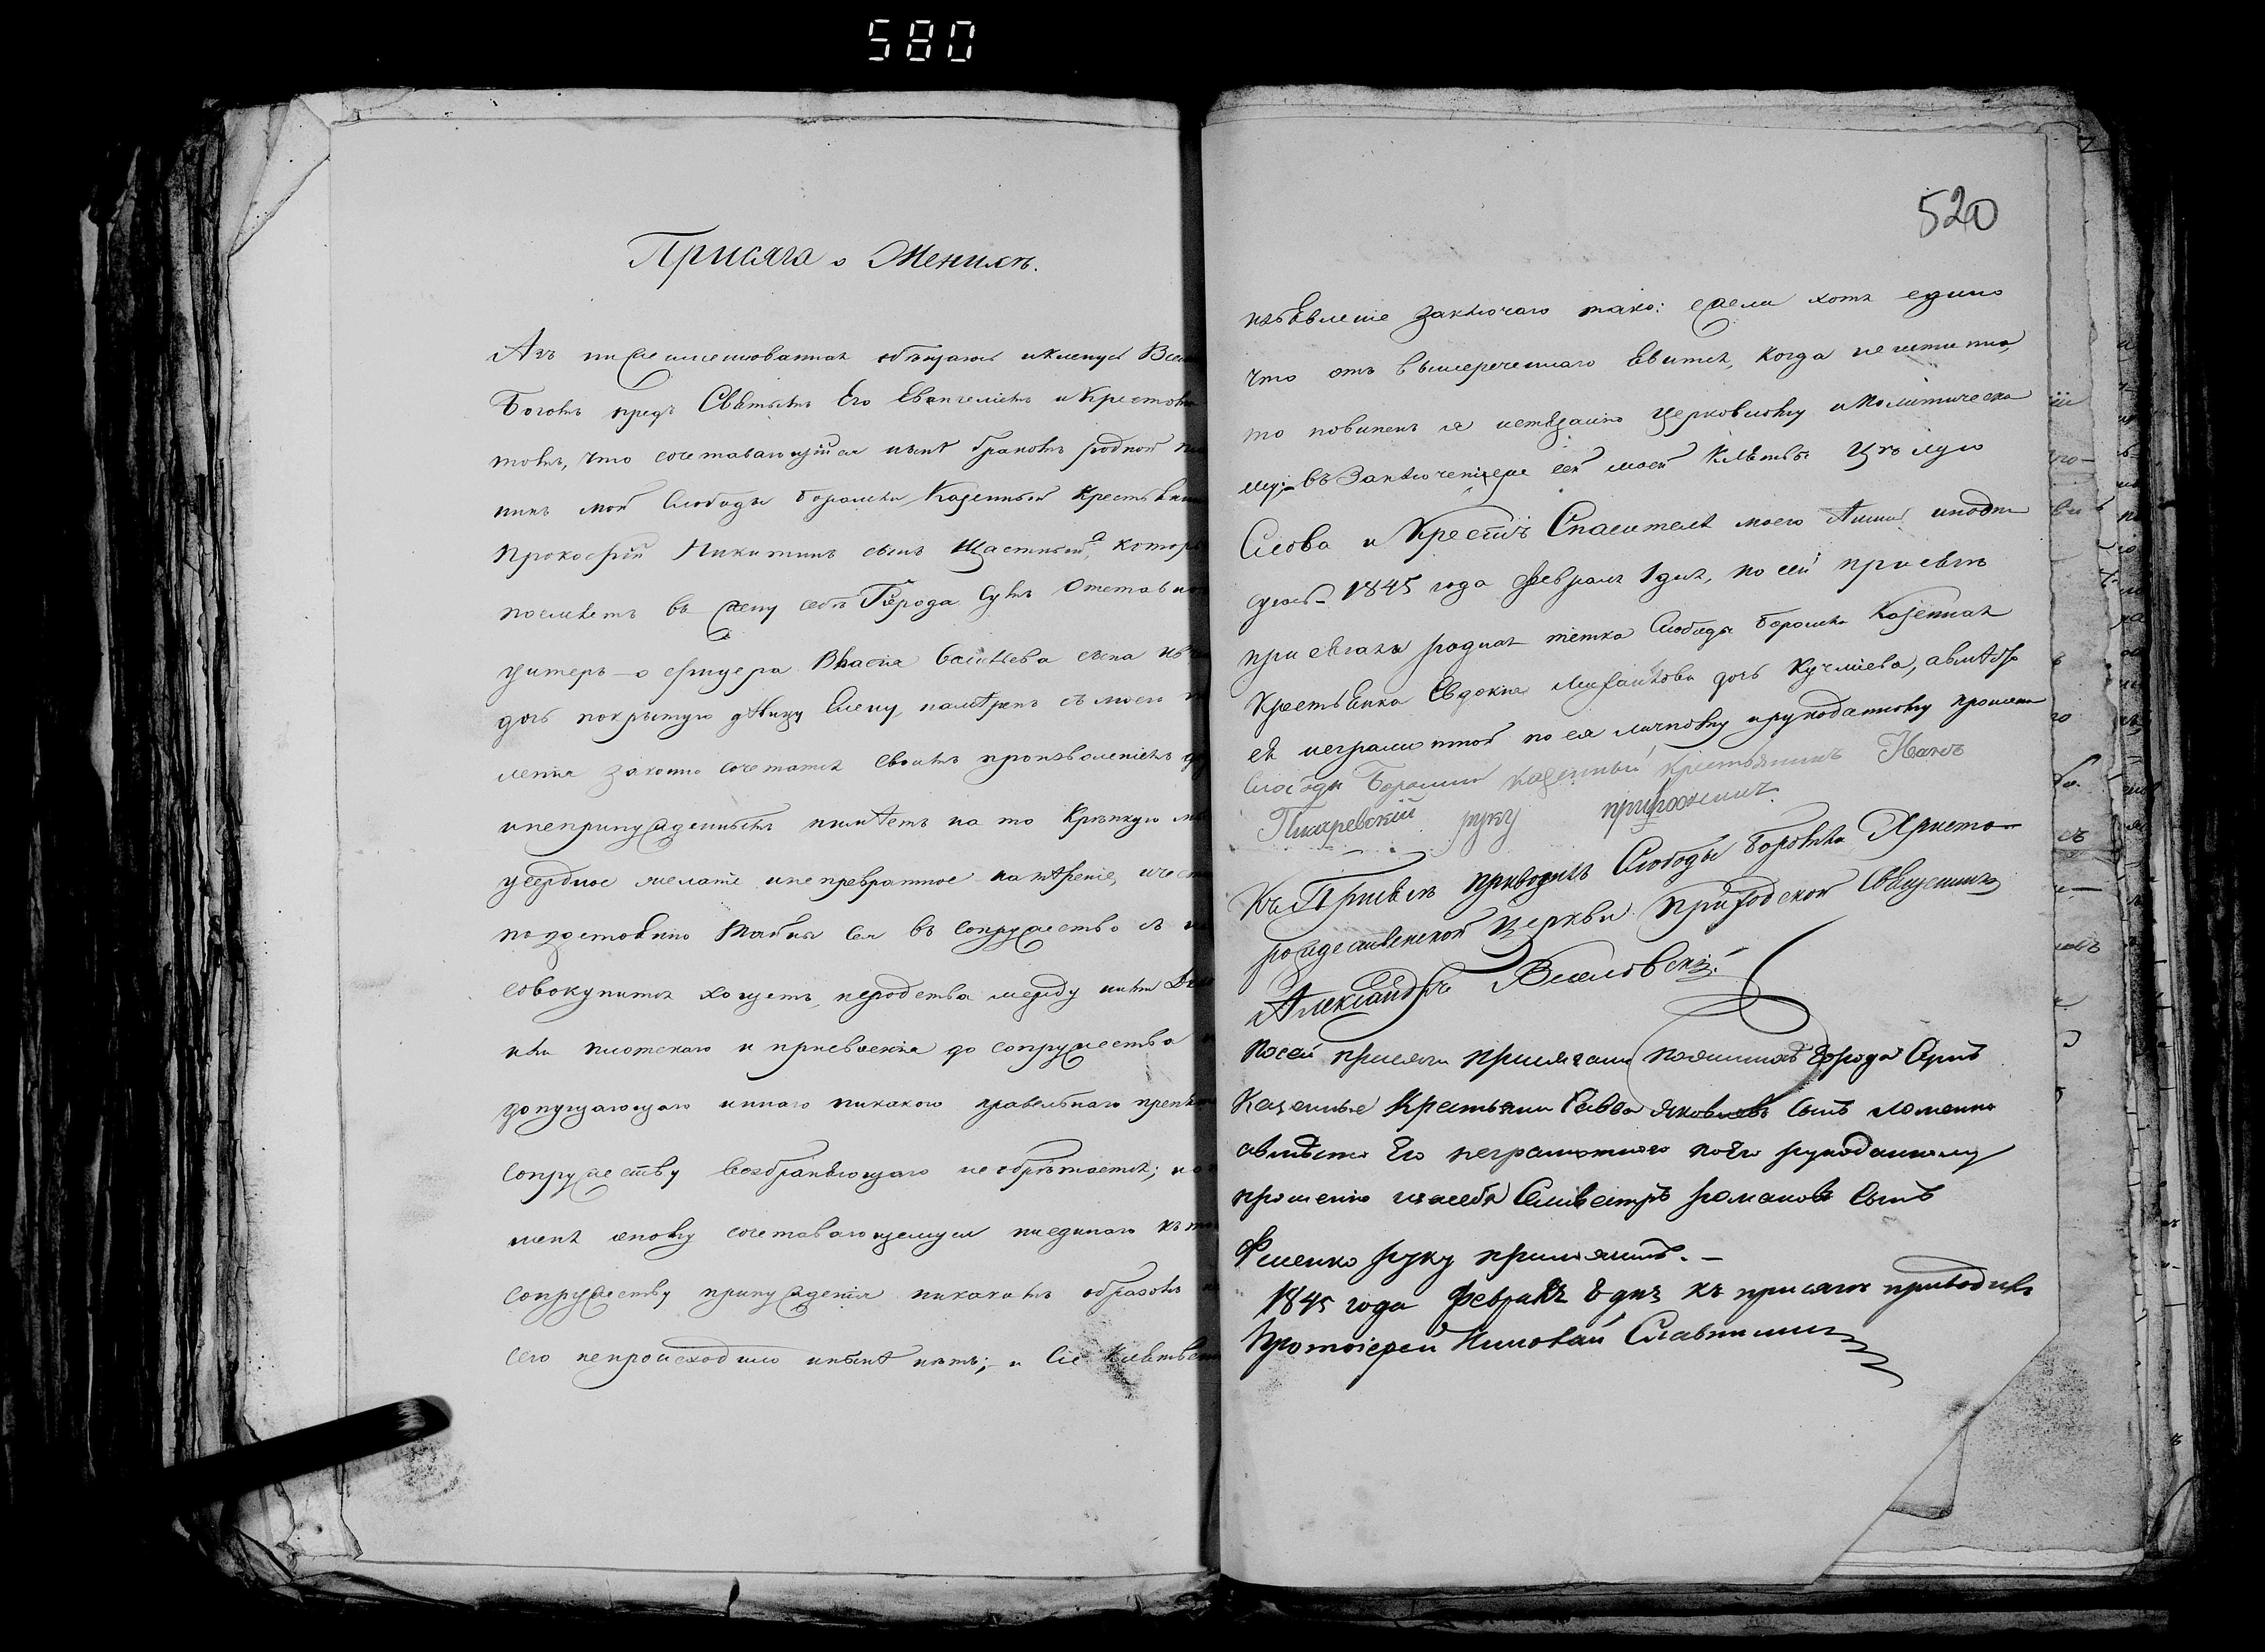 580
520
Присяга о Женихѣ.
Азъ нижеименованная обѣщаюсь и кленусь Всем
Богомъ предъ Святымъ Его Евангеліемъ и Крестомъ
томъ, что сочетавающійся нынѣ бракомъ родной
никъ мой Слободы Боромли Казенный Крестьянинъ
Прокофій Никитинъ сынъ Щастный, котор
поемлетъ въ жену себѣ Города Сумъ Отставно
унтеръ-офицера Власія Васильева сына
дочь покрытую дѣвицу Елену, намѣренъ съ моего
ленія законно сочетатся своимъ произволеніемъ
и непринужденнымъ имѣетъ на то Крѣпкую
усердное желаніе и непревратное намѣреніе, и
подостоянію Тайны Сея въ сопружество съ
совокупится хощетъ, неродства между ими
ини плотскаго и присвоенія до сопружества
допущающаго иннаго никакого правельнаго препя
сопружеству возбраняющаго не обрѣтается;
мене оному сочетавающемуся ниединаго къ
сопружеству принужденія никакимъ образомъ
сего непроисходило и нынѣ нѣтъ; и Сіе Клятвен
изъявленіе заключаю тако: ежели хотя едино
что отъ вышереченнаго явится, когда неистинно,
то повиненъ я истязанію Церковному и Политическо
му; въ Заключеніе же сей моей Клятвы Цѣлую
Слова и Крестъ Спасителя моего Аминь
1845 года Февраля 1 дня, по сей присягѣ
присягала родная тетка Слободы Боромли Казенная
Крестьянка Евдокія Михайлова дочь Кучміева, а вмѣсто
ея неграмотной по ея личному и рукоданному прошені
Слободы Боромли казенный крестьянинъ Иванъ
Писаревскій руку приложилъ.
Къ Присягѣ приводилъ Слободы Боромли Христо-
рождественской Церкви Приходской Священникъ
Александръ
По сей присяги присягалъ города Сумъ
Казенные Крестьяни Савва Яковлевъ Сынъ
а вмѣсто Его неграмотного по Его рукоданному
прошенію и за себя Селивестръ романовъ Сынъ
руку приложилъ.-
1845 года Февраля 8 дня къ присягѣ приводилъ
Протоіерей Николай